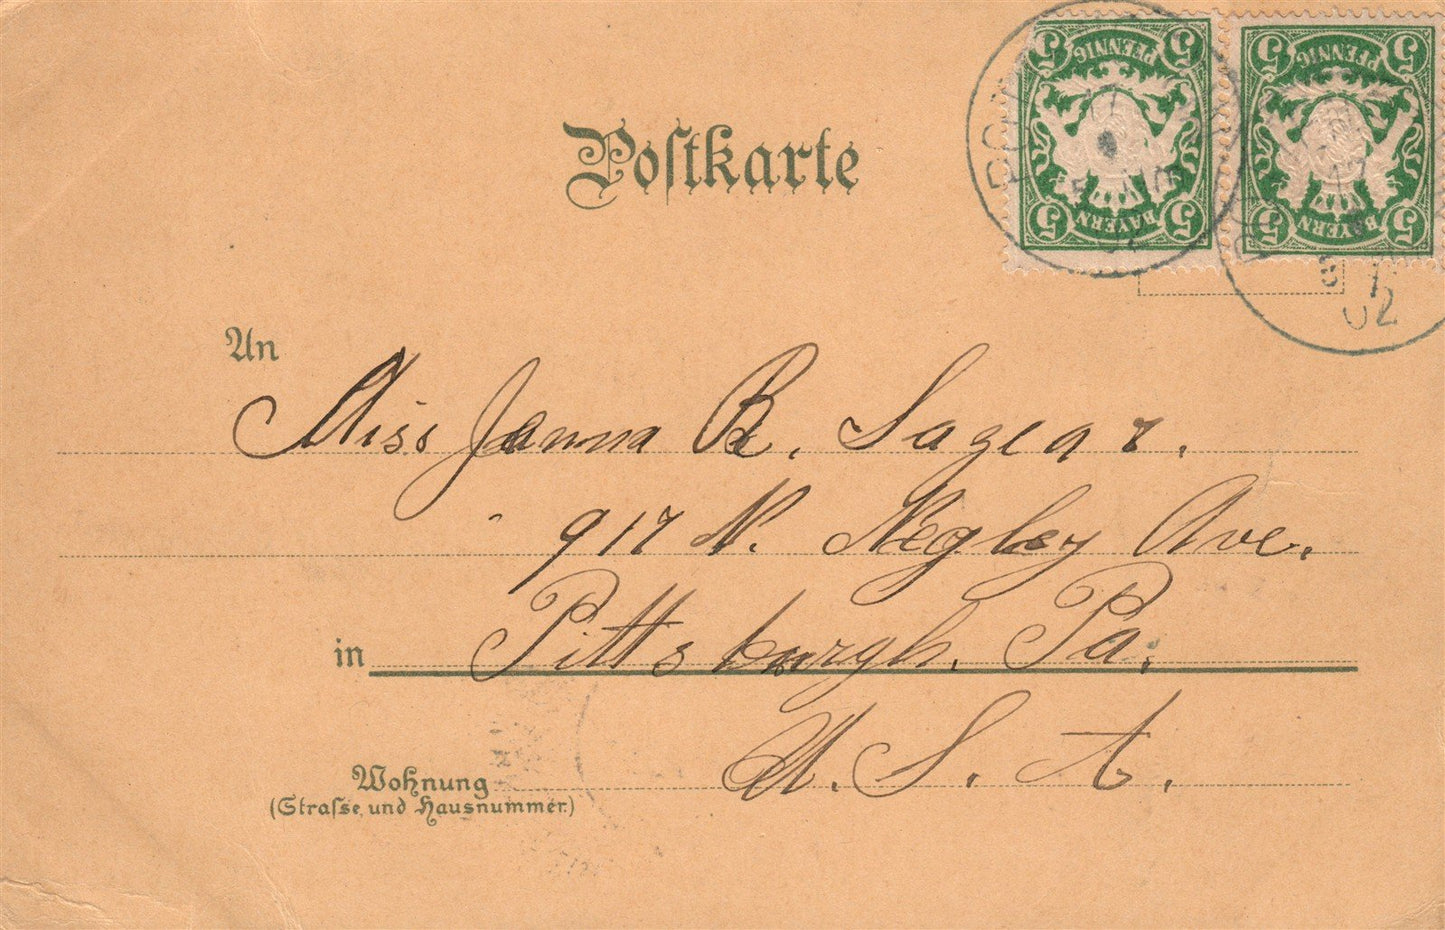 Postkarte
5 PFENNIG 5
5 BAYERN 5
5 PFENNIG 5
5 BAYERN 5
02
An
Miss Janna R. Sagear.
917 N. Negley Ave.
in Pittsburgh, Pa.
U. S. A.
Wohnung
(Straſse und Hausnummer.)